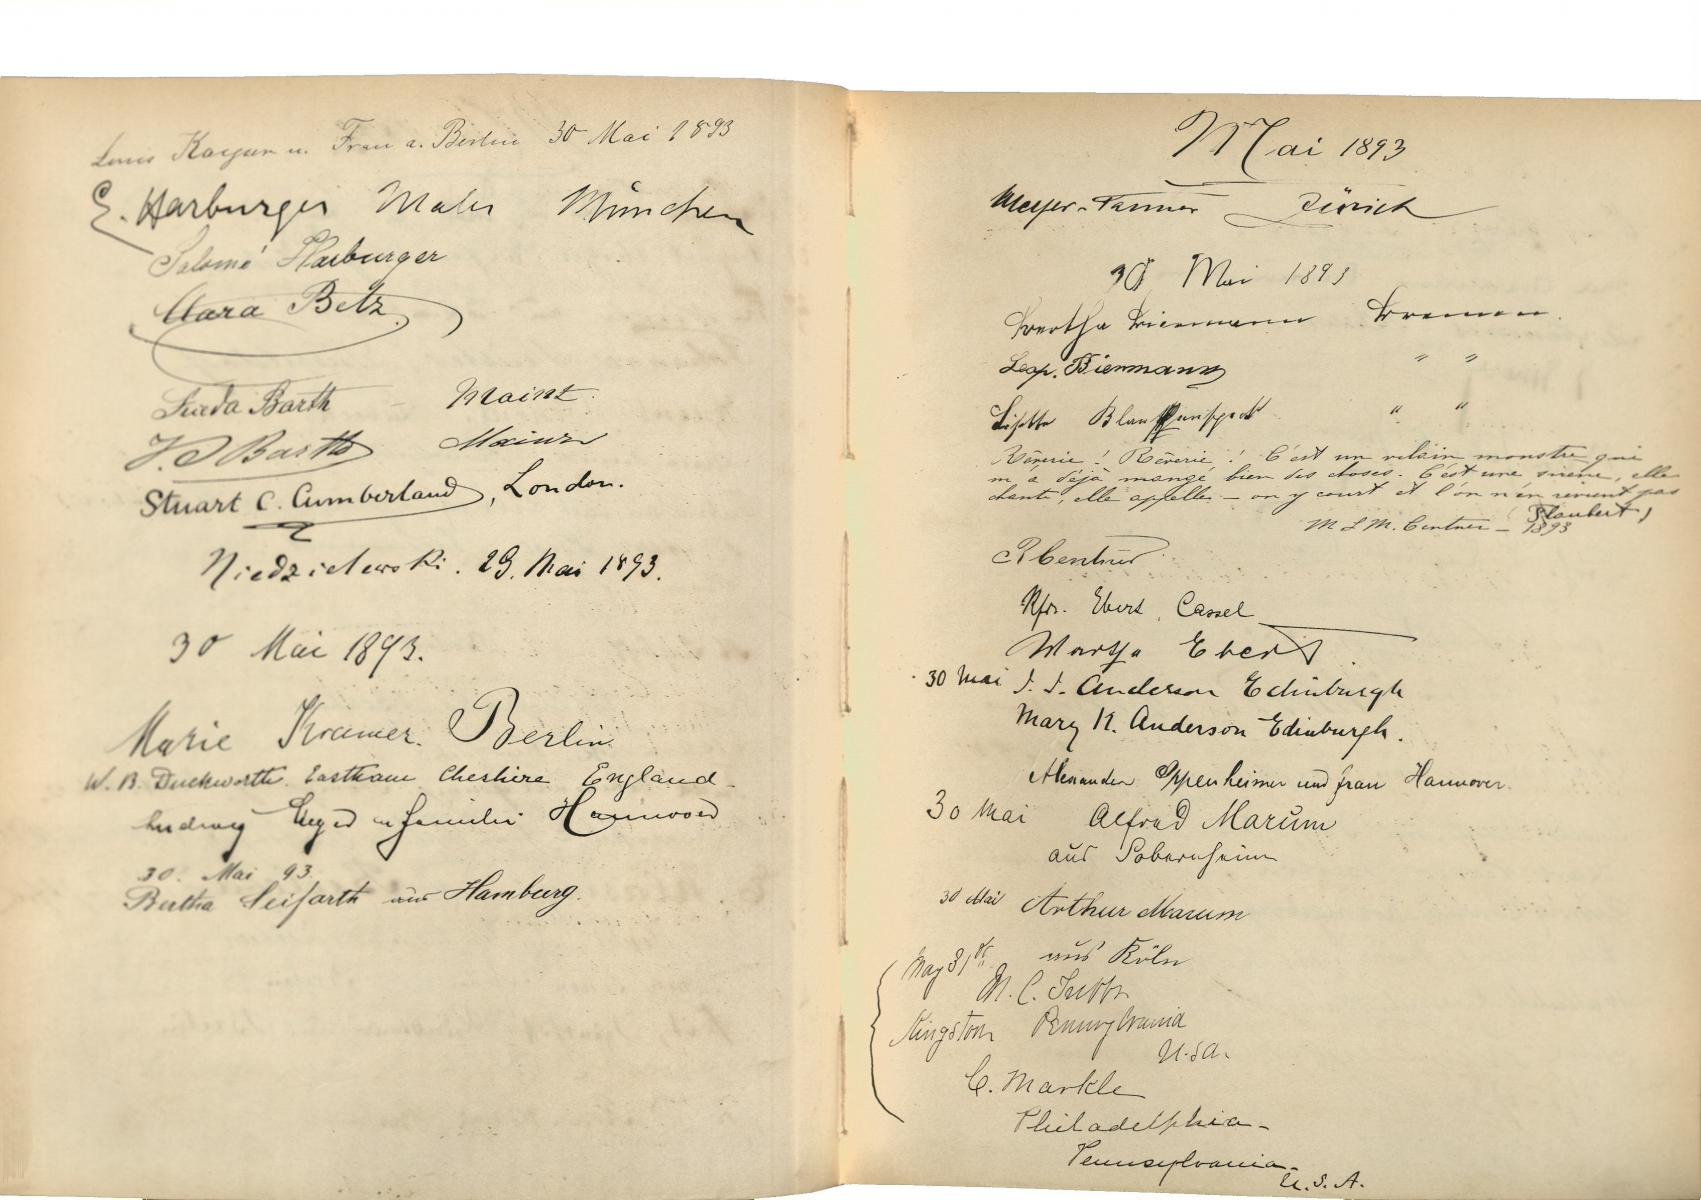 Louis u. Frau a. Berlin 30 Mai 1893
E. Harburger Maler München
Salomé Harburger
Clara Betz
Frieda Barth - Mainz.
Barth Mainz
Stuart C. Cumberland, London.
Niedzielewski. 29. Mai 1893.
30 Mai 1893.
Marie Kramer. Berlin.
W. B. Duckworth. Eastham Cheshire England
Ludwig u Familie Hannover
30. Mai 93.
Bertha Seifarth aus Hamburg.
Mai 1893
Meyer-Tanner Zürich
30 Mai 1893
Bertha Biermann Bremen.
Leop. Biermann " "
Lisette " "
Rêverie! Rêverie! C'est un vilain monstre qui
m'a déjà mangé bien des choses. C'est une sirène, elle
chante, elle appelle - on y court et l'on n'en revient pas
Flaubert,
M L M. Centner - 1893
R Centner
Rfr. Ebert, Cassel
Martha Ebert
30 Mai J. J. Anderson Edinburgh
Mary K. Anderson Edinburgh.
Alexander Oppenheimer und Frau Hannover.
30 Mai Alfred Marum
aus Sobernheim
30 Mai Arthur Marum
aus Köln
May 31st
M. C.
Kingston Pennsylvania
U.S.A.
C. Markle
Philadelphia-
Pennsylvania-
U.S.A.